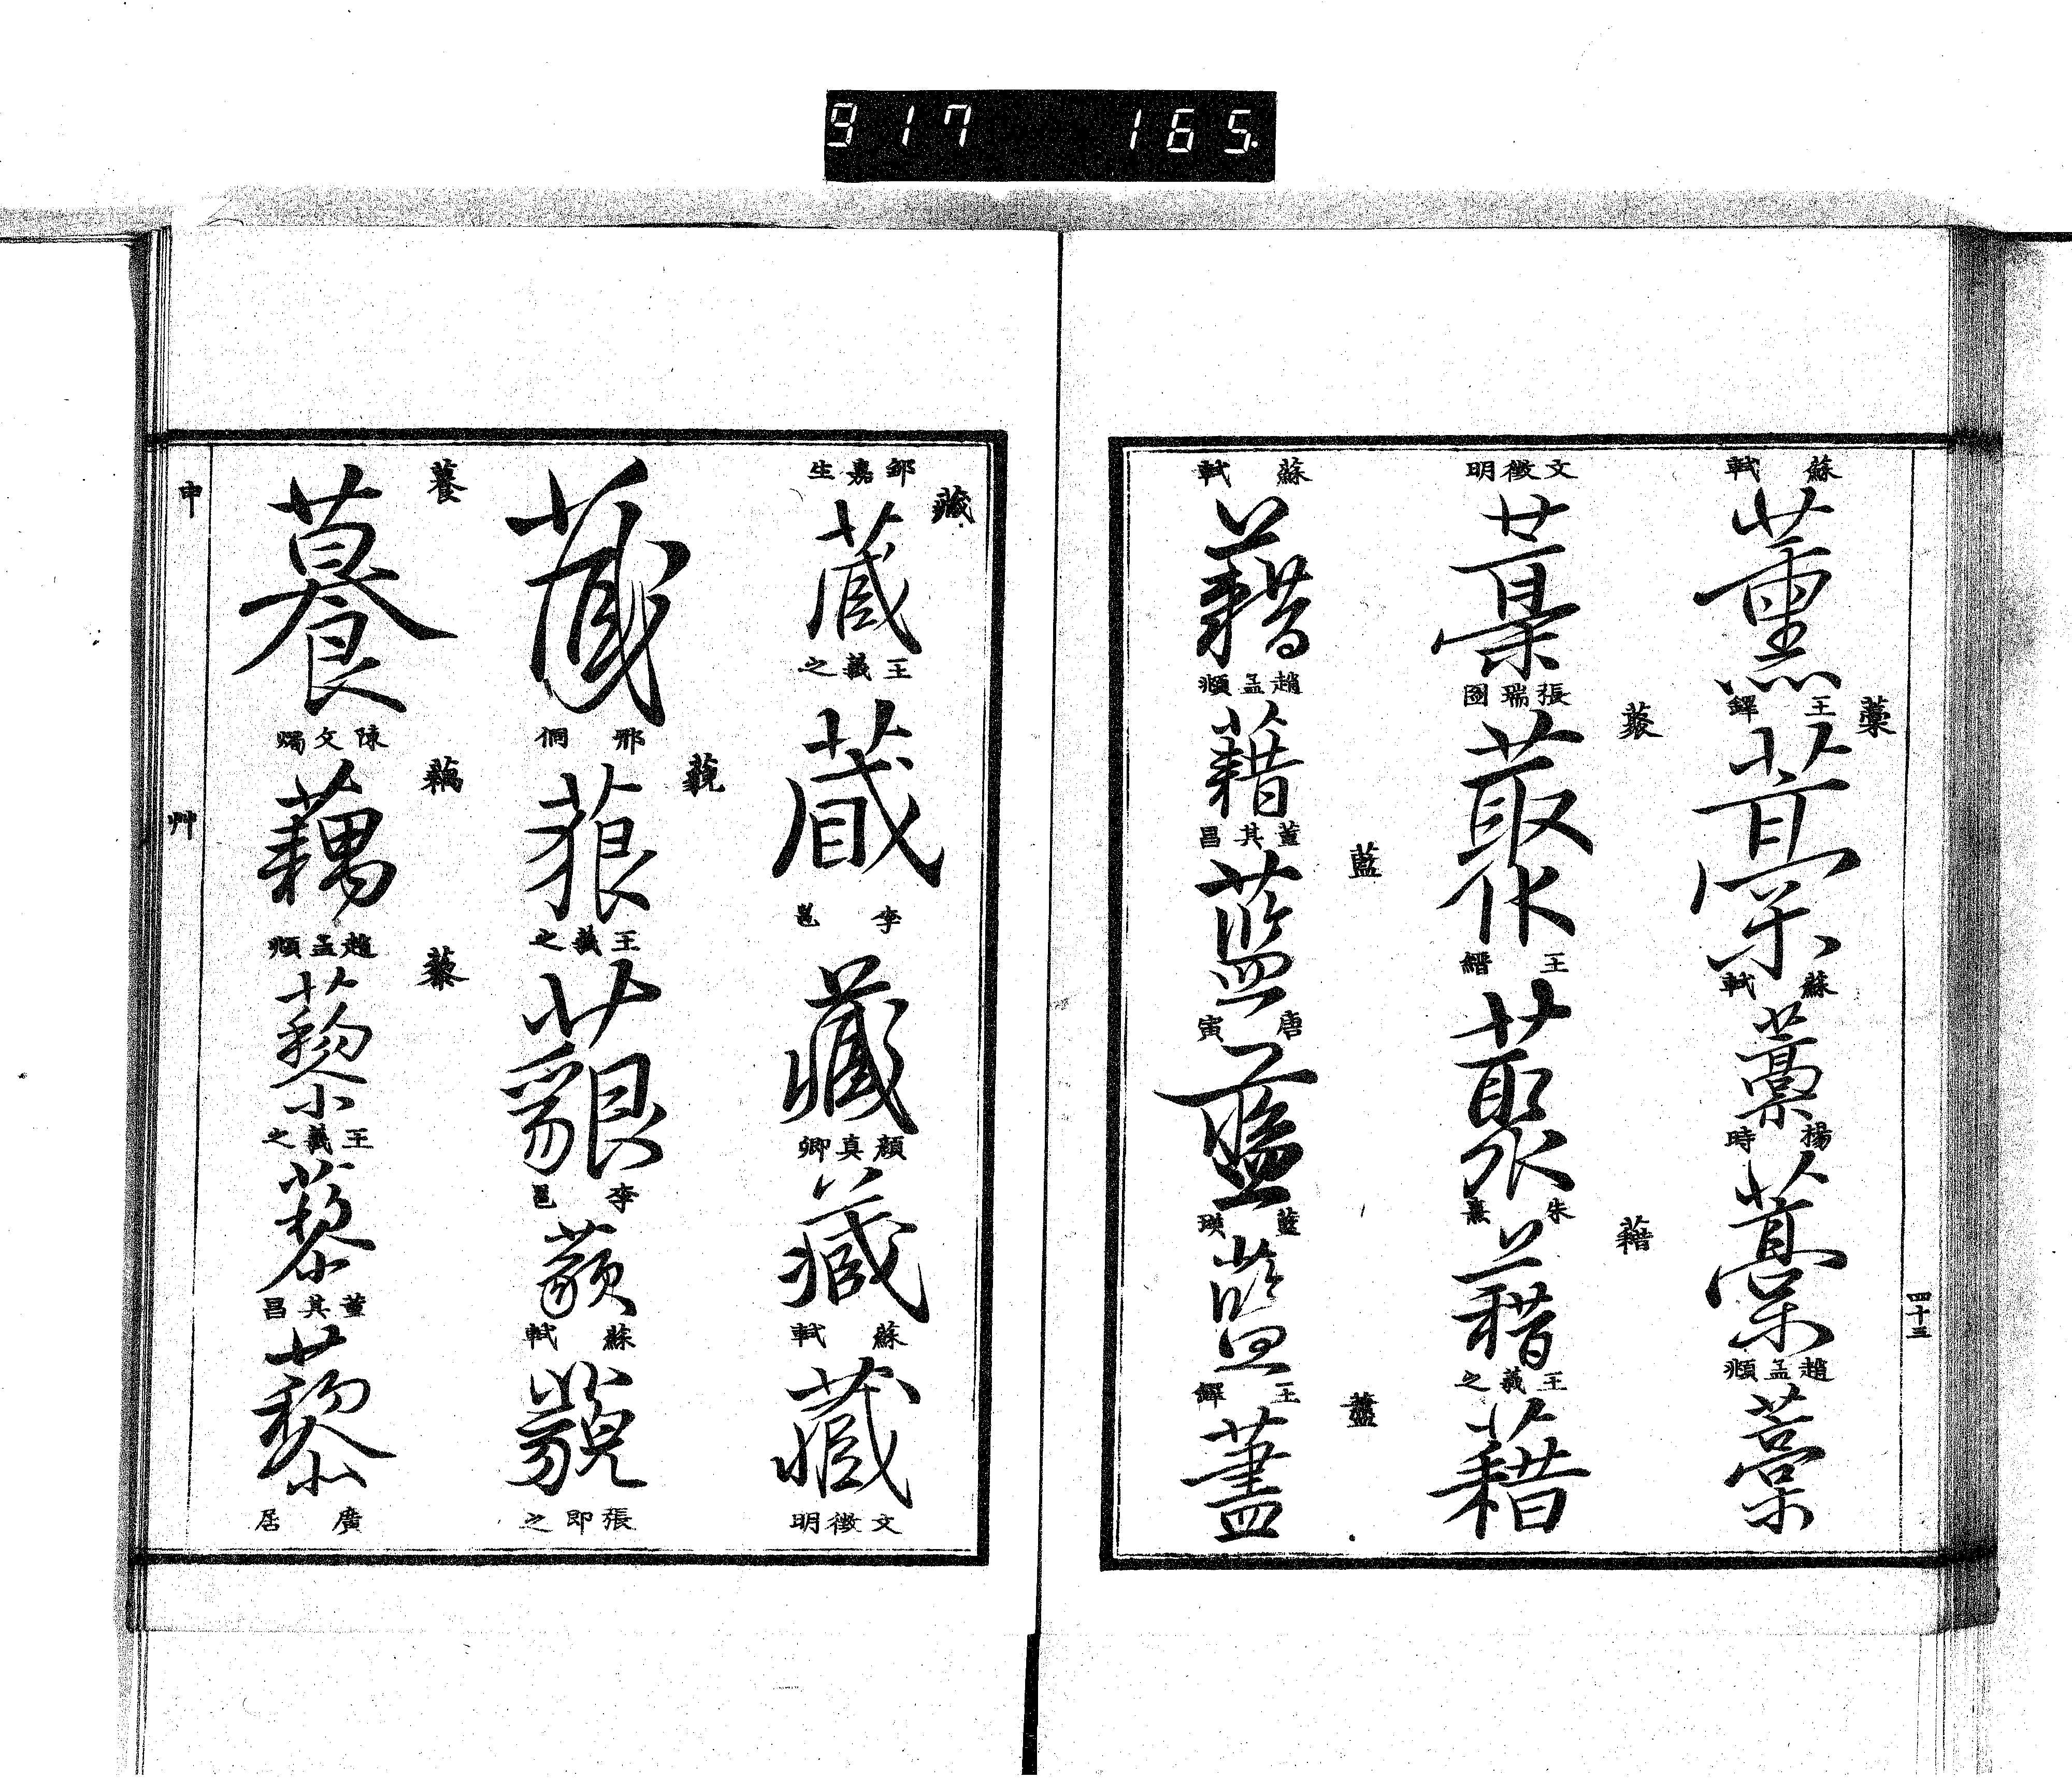 917 165.
四十三
蘇軾
薰
王鐸
藁
藁
蘇軾
藁
楊時
藁
趙孟頫
藁
文徵明
藁
張瑞國
藂
藂
王縉
藂
朱熹
藉
藉
王羲之
藉
蘇軾
藉
趙孟頫
藉
董其昌
藍
藍
唐寅
藍
藍瑛
藍
王鐸
藎
藎
藏
鄒嘉生
藏
王羲之
藏
李邕
藏
顏真卿
藏
蘇軾
藏
文徵明
藏
邢侗
藐
藐
王羲之
藐
李邕
藐
蘇軾
藐
張即之
養
陳文燭
藕
藕
趙孟頫
藜
藜
王羲之
藜
董其昌
藜
廣居
申
艸